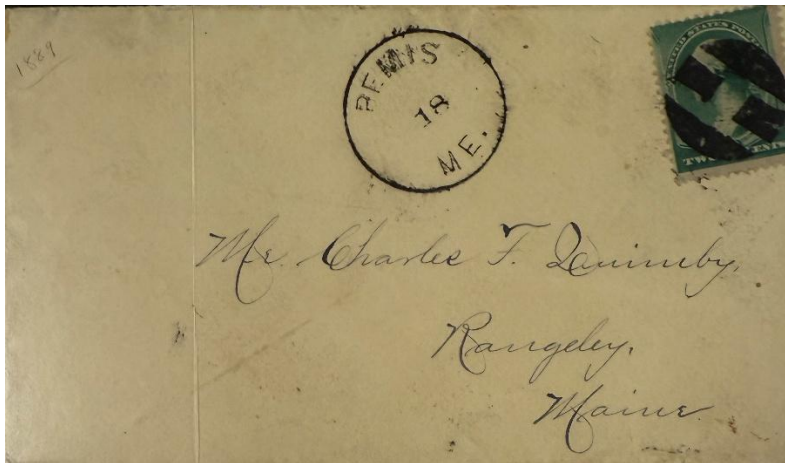 1889
BEMIS
18
ME.
UNITED STATES POST
TWO CEN
Mr. Charles F. Quimby,
Rangeley,
Maine